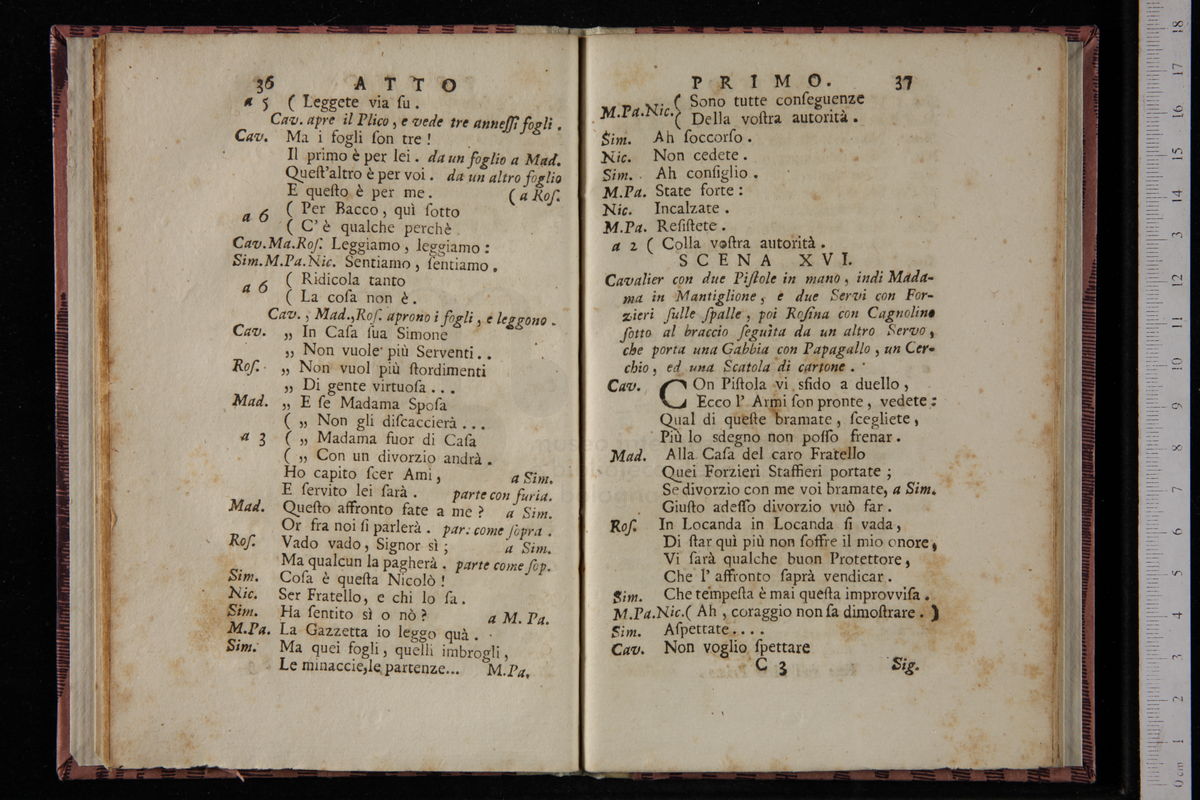 36 ATTO
a 5 ( Leggete via ſu .
Cav. apre il Plico , e vede tre anneſſi fogli .
Cav. Ma i fogli ſon tre !
Il primo è per lei . da un foglio a Mad.
Queſt'altro è per voi . da un altro foglio
E queſto è per me . ( a Roſ.
a 6 ( Per Bacco , quì ſotto
( C' è qualche perchè .
Cav.Ma.Roſ. Leggiamo , leggiamo :
Sim.M.Pa.Nic. Sentiamo , ſentiamo .
a 6 ( Ridicola tanto
( La coſa non è .
Cav. , Mad.,Roſ. aprono i fogli , e leggono .
Cav. „ In Caſa ſua Simone
„ Non vuole più Serventi . .
Roſ. „ Non vuol più ſtordimenti
„ Di gente virtuoſa . . .
Mad. „ E ſe Madama Spoſa
( „ Non gli diſcaccierà . . .
a 3 ( „ Madama fuor di Caſa
( „ Con un divorzio andrà .
Ho capito ſcer Ami , a Sim.
E ſervito lei ſarà . parte con furia.
Mad. Queſto affronto fate a me ? a Sim.
Or fra noi ſi parlerà . par: come ſopra .
Roſ. Vado vado , Signor sì ; a Sim.
Ma qualcun la pagherà . parte come ſop.
Sim. Coſa è queſta Nicolò !
Nic. Ser Fratello , e chi lo ſa .
Sim. Ha ſentito sì o nò ? a M. Pa.
M.Pa. La Gazzetta io leggo quà .
Sim. Ma quei fogli , quelli imbrogli ,
Le minaccie,le partenze... M.Pa.
PRIMO. 37
M.Pa.Nic. ( Sono tutte conſeguenze
( Della voſtra autorità .
Sim. Ah ſoccorſo .
Nic. Non cedete .
Sim. Ah conſiglio .
M.Pa. State forte :
Nic. Incalzate .
M.Pa. Reſiſtete .
a 2 ( Colla voſtra autorità .
SCENA XVI.
Cavalier con due Piſtole in mano , indi Mada-
ma in Mantiglione , e due Servi con For-
zieri ſulle ſpalle , poi Roſina con Cagnolino
ſotto al braccio ſeguita da un altro Servo ,
che porta una Gabbia con Papagallo , un Cer-
chio , ed una Scatola di cartone .
Cav. COn Piſtola vi sfido a duello ,
Ecco l' Armi ſon pronte , vedete :
Qual di queſte bramate , ſcegliete ,
Più lo sdegno non poſſo frenar .
Mad. Alla Caſa del caro Fratello
Quei Forzieri Staffieri portate ;
Se divorzio con me voi bramate, a Sim.
Giuſto adeſſo divorzio vuò far .
Roſ. In Locanda in Locanda ſi vada ,
Di ſtar quì più non ſoffre il mio onore ,
Vi ſarà qualche buon Protettore ,
Che l' affronto ſaprà vendicar .
Sim. Che tempeſta è mai queſta improvviſa .
M.Pa.Nic.( Ah , coraggio non ſa dimoſtrare . )
Sim. Aſpettate . . . .
Cav. Non voglio ſpettare
C 3 Sig.